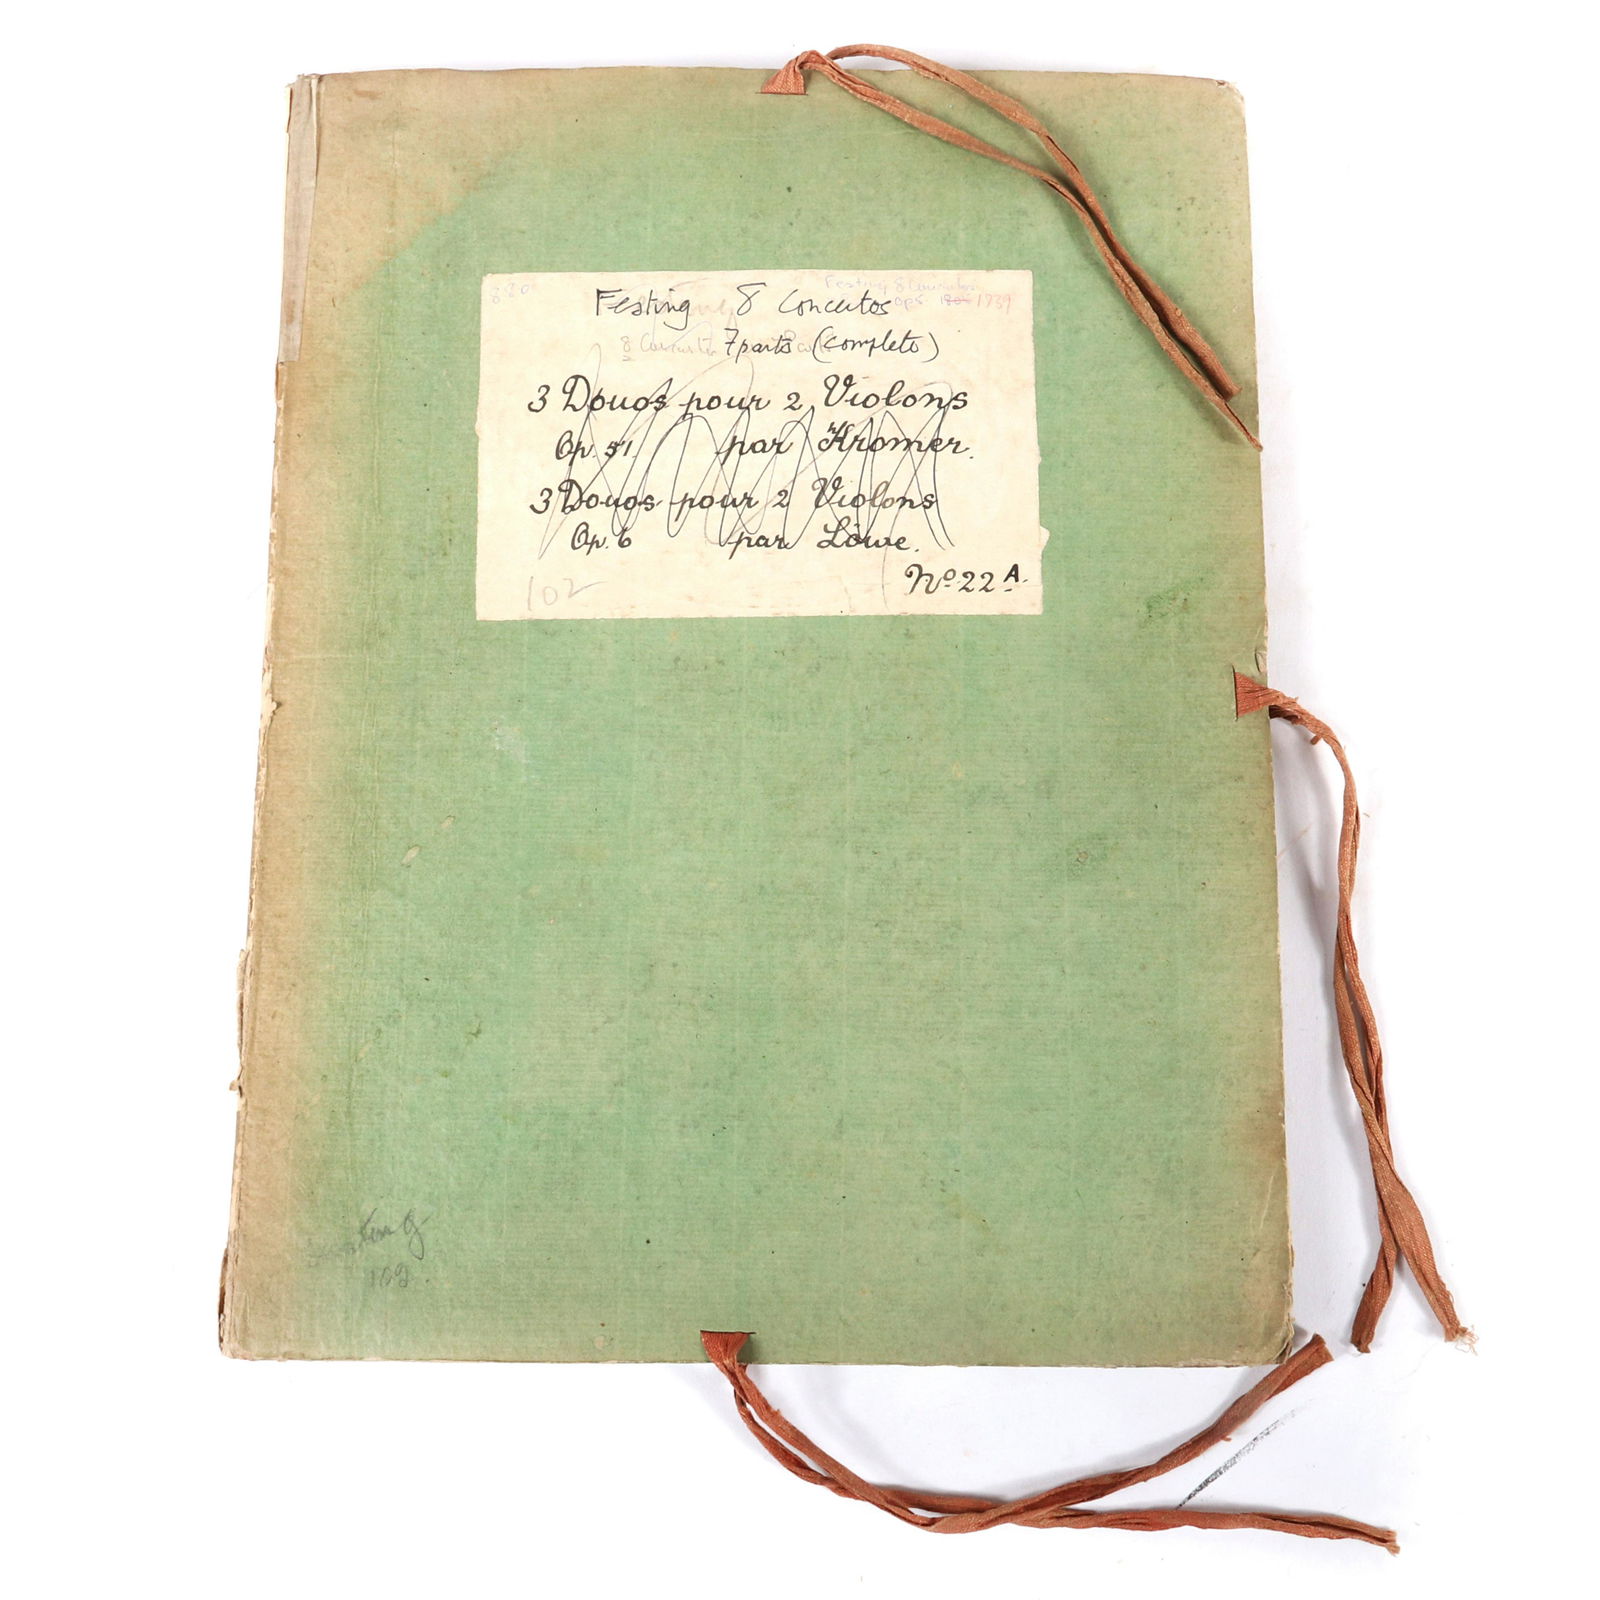 880
Festing 8 Concertos
Festing 8 Concertos
op 5 1805 1739
8 Concertos 7 parts (complete)
3 Douos pour 2 Violons
Op. 51. par Kromer.
3 Douos pour 2 Violons
Op. 6 par Löwe.
102
No. 22 A.
109.